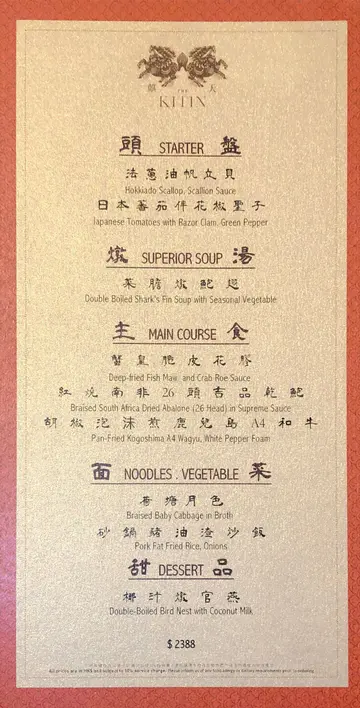 麒 天
THE
KITIN
頭 STARTER 盤
法蔥油帆立貝
Hokkiado Scallop, Scallion Sauce
日本番茄伴花椒聖子
Japanese Tomatoes with Razor Clam, Green Pepper
燉 SUPERIOR SOUP 湯
菜膽燉鮑翅
Double Boiled Shark's Fin Soup with Seasonal Vegetable
主 MAIN COURSE 食
蟹皇脆皮花膠
Deep-fried Fish Maw, and Crab Roe Sauce
紅燒南非26頭吉品乾鮑
Braised South Africa Dried Abalone (26 Head) in Supreme Sauce
胡椒泡沫煎鹿兒島A4和牛
Pan-Fried Kogoshima A4 Wagyu, White Pepper Foam
面 NOODLES . VEGETABLE 菜
塘月色
Braised Baby Cabbage in Broth
砂鍋豬油渣炒飯
Pork Fat Fried Rice, Onions
甜 DESSERT 品
椰汁燉官燕
Double-Boiled Bird Nest with Coconut Milk
$ 2388
All prices are in HK$ and subject to 10% service charge. Please inform us of any food allergy or dietary requirements prior to ordering.